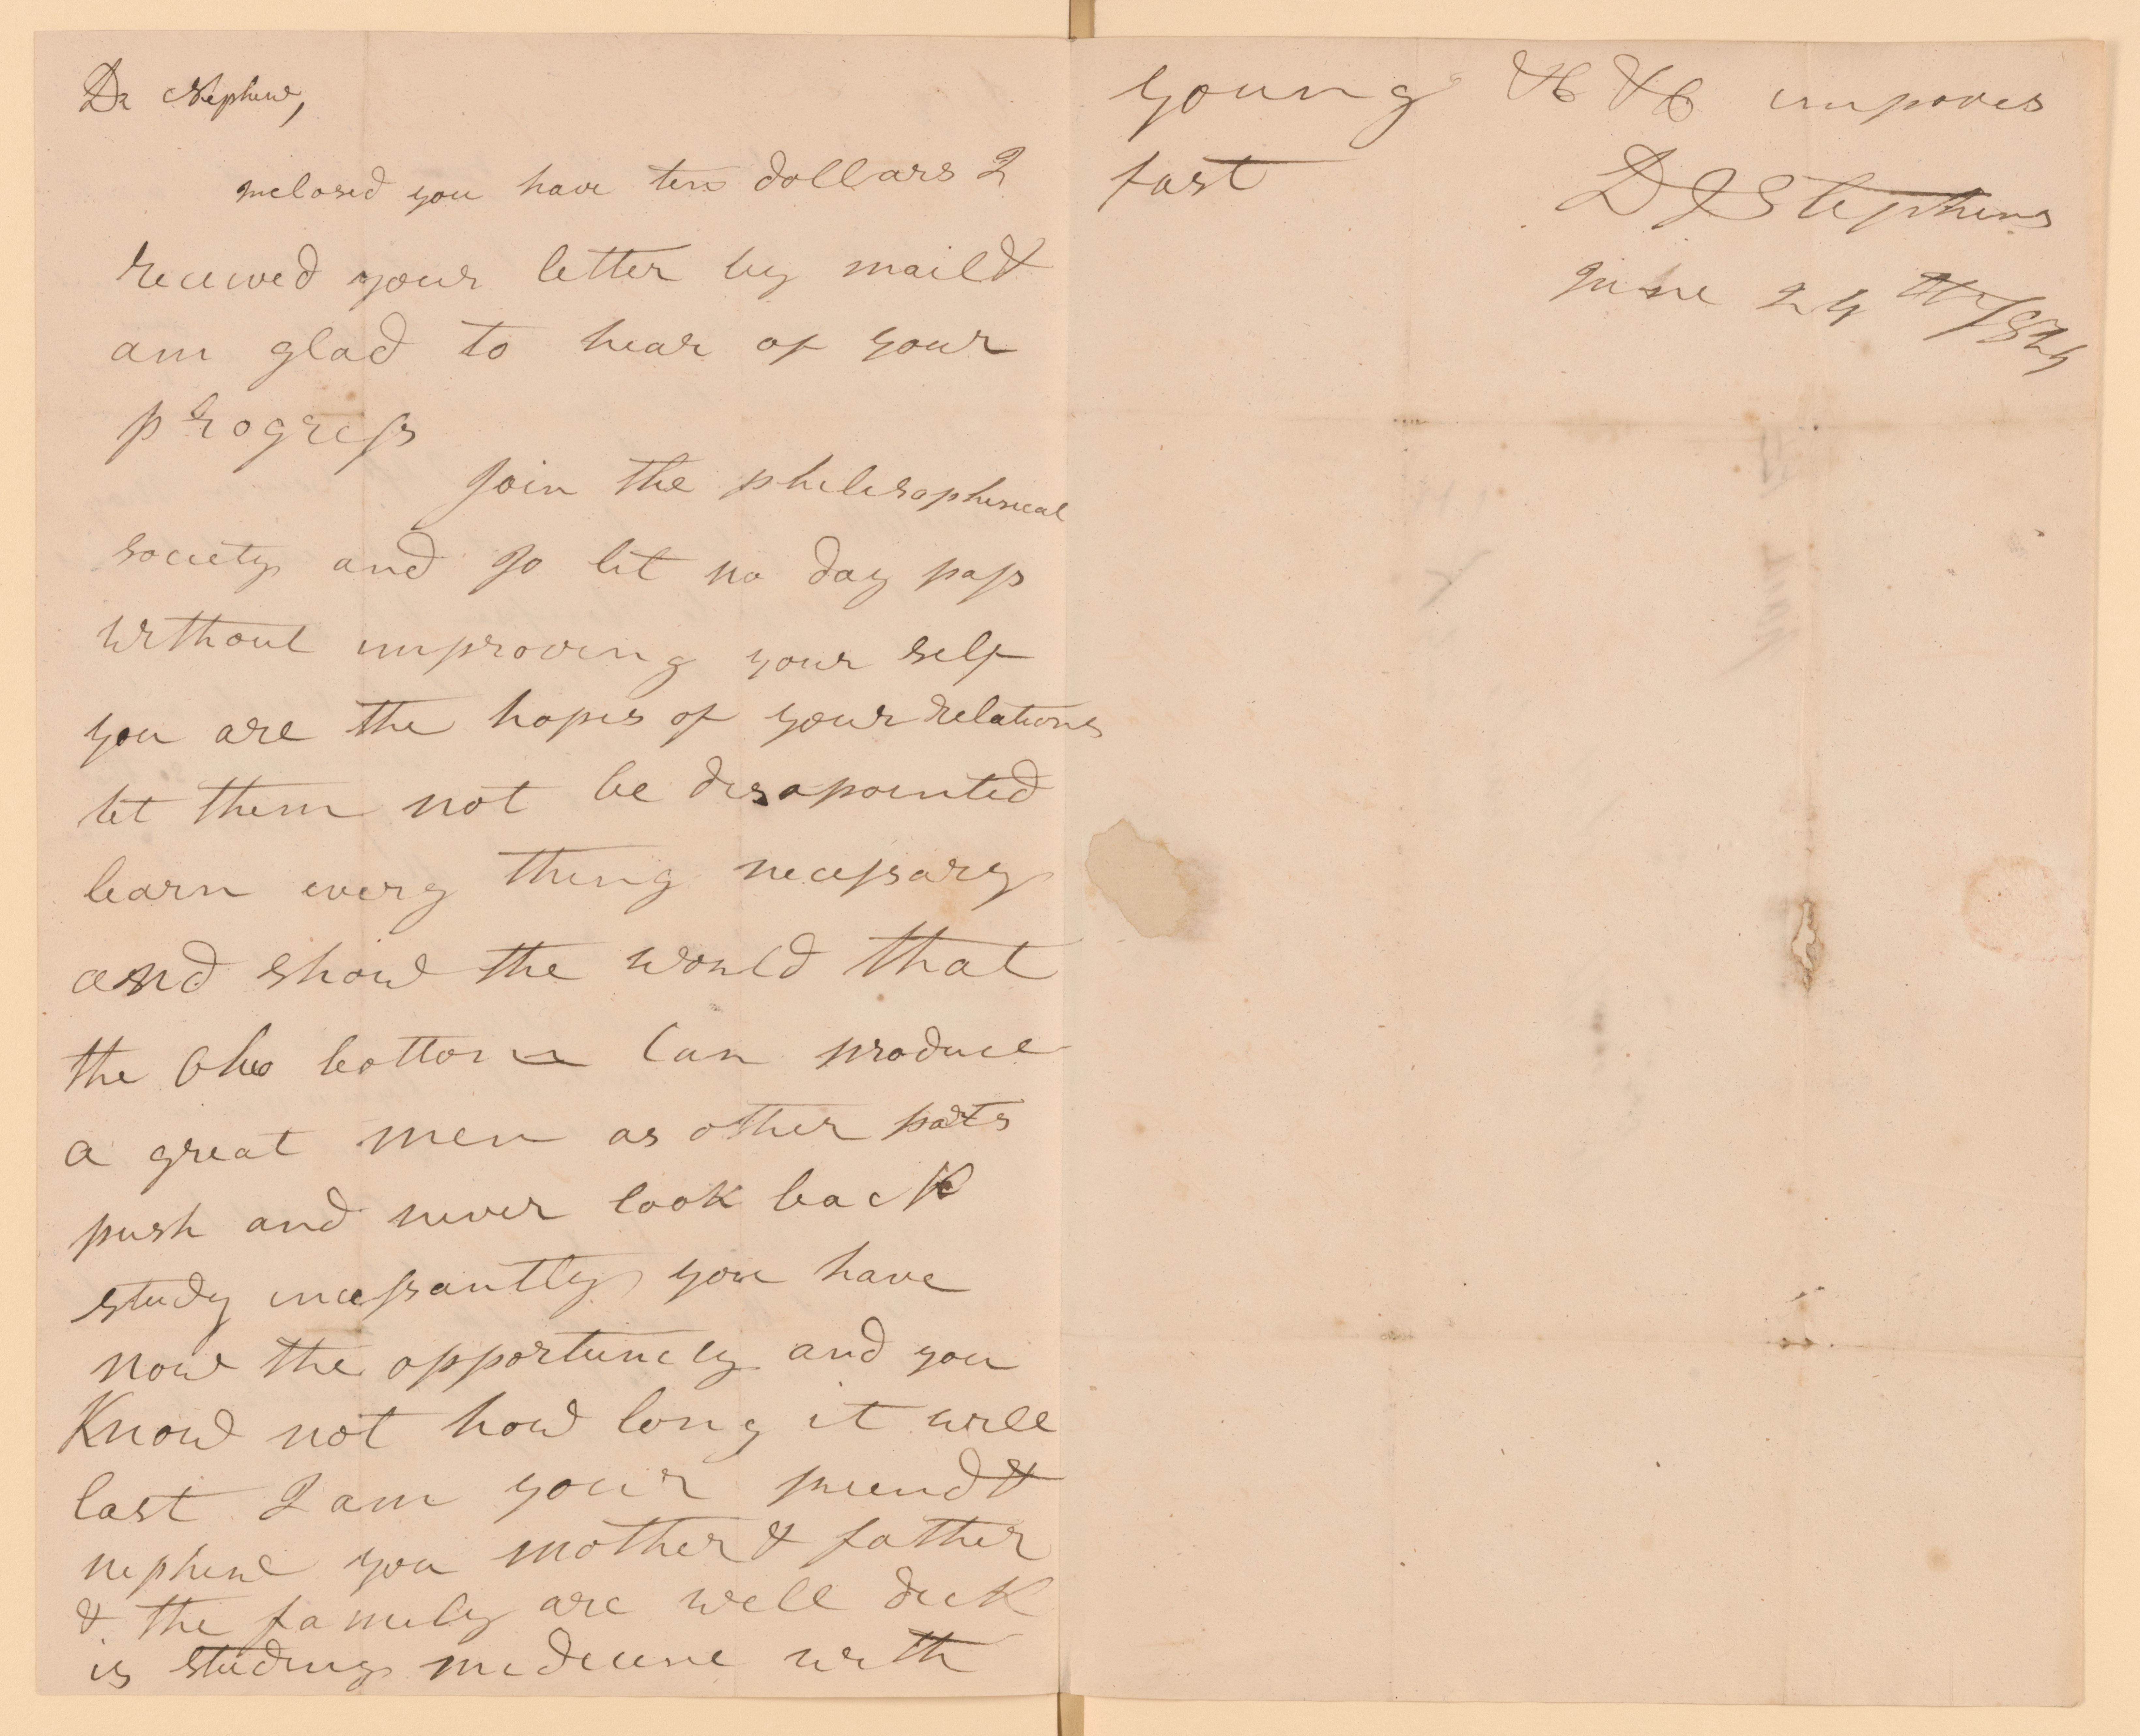 Dr Nephew,
inclosed you have ten dollars I
received your letter by mail &
am glad to hear of your
progress
Join the philosophical
society and go let no day pass
without improving your self
you are the hopes of your relations
let them not be disapointed
learn every thing necessary
and show the world that
the Ohio bottom can produce
a great men as other parts
push and never look back
study incessantly you have
now the opportunity and you
Know not how long it will
last I am your friend &
nephew you mother & father
& the family are well dick
is studing medicine with
young &c &c improves
fast
D J Stephens
June 24th 1824